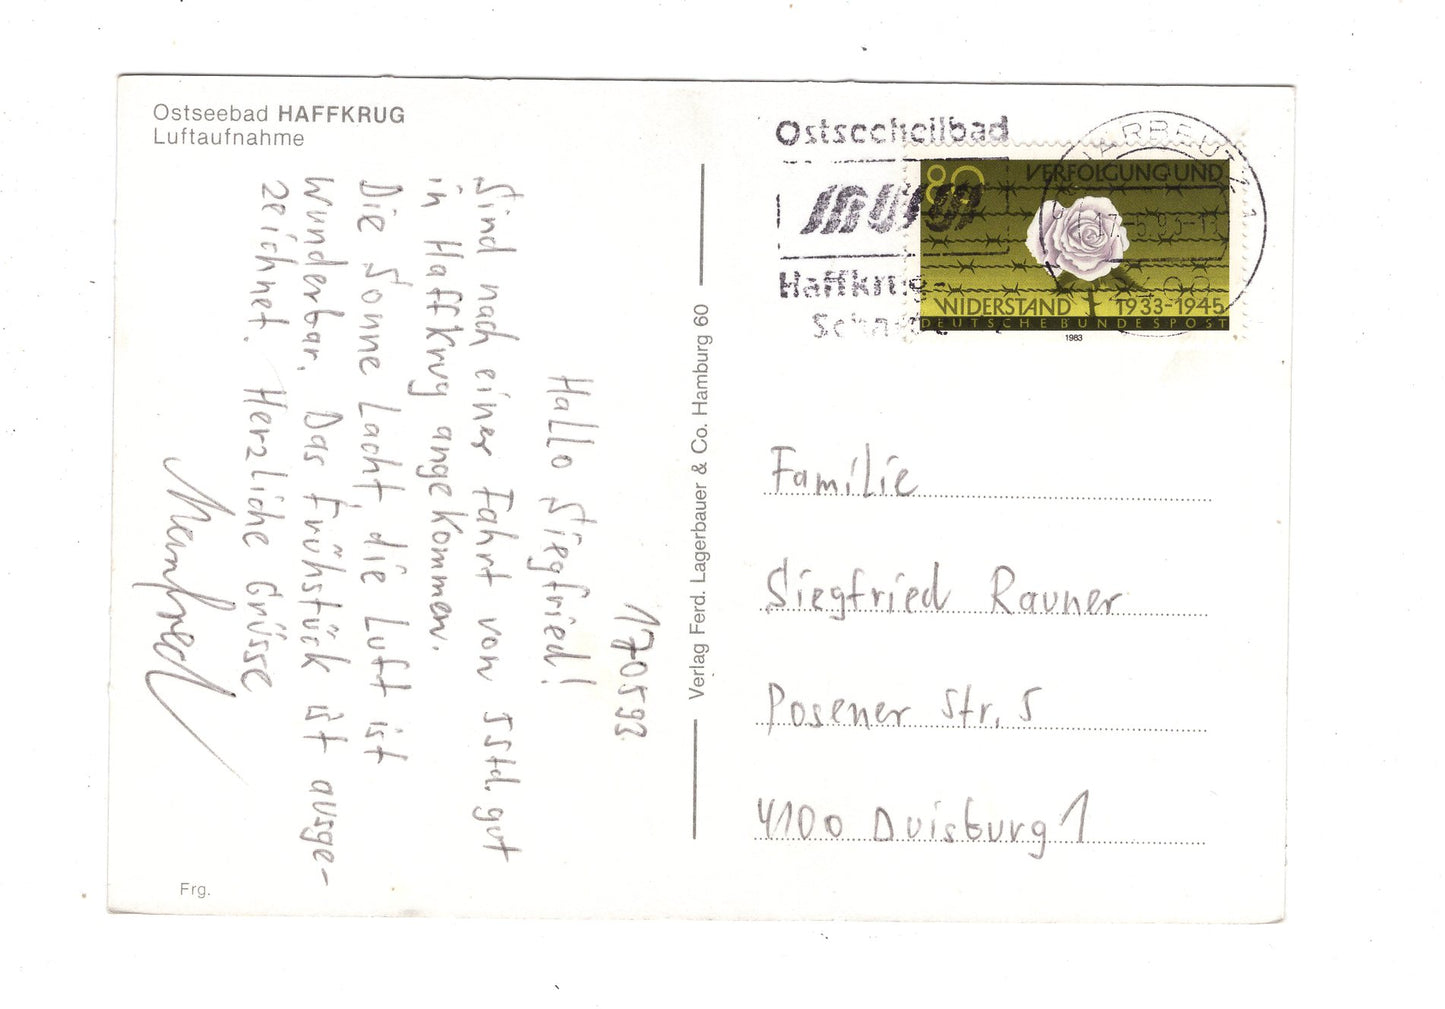 Ostseebad HAFFKRUG
Luftaufnahme
170593
Hallo Siegfried!
Sind nach einer Fahrt von 5 Std. gut
in Haffkrug angekommen.
Die Sonne Lacht, die Luft ist
wunderbar. Das Frühstück ist ausge-
zeichnet. Herzliche Grüsse
Manfred
Frg.
Verlag Ferd. Lagerbauer & Co. Hamburg 60
Ostseeheilbad
Haffkrug-
80
VERFOLGUNG UND
WIDERSTAND 1933-1945
DEUTSCHE BUNDESPOST
1983
Familie
Siegfried Rauner
Posener Str. 5
4100 Duisburg 1